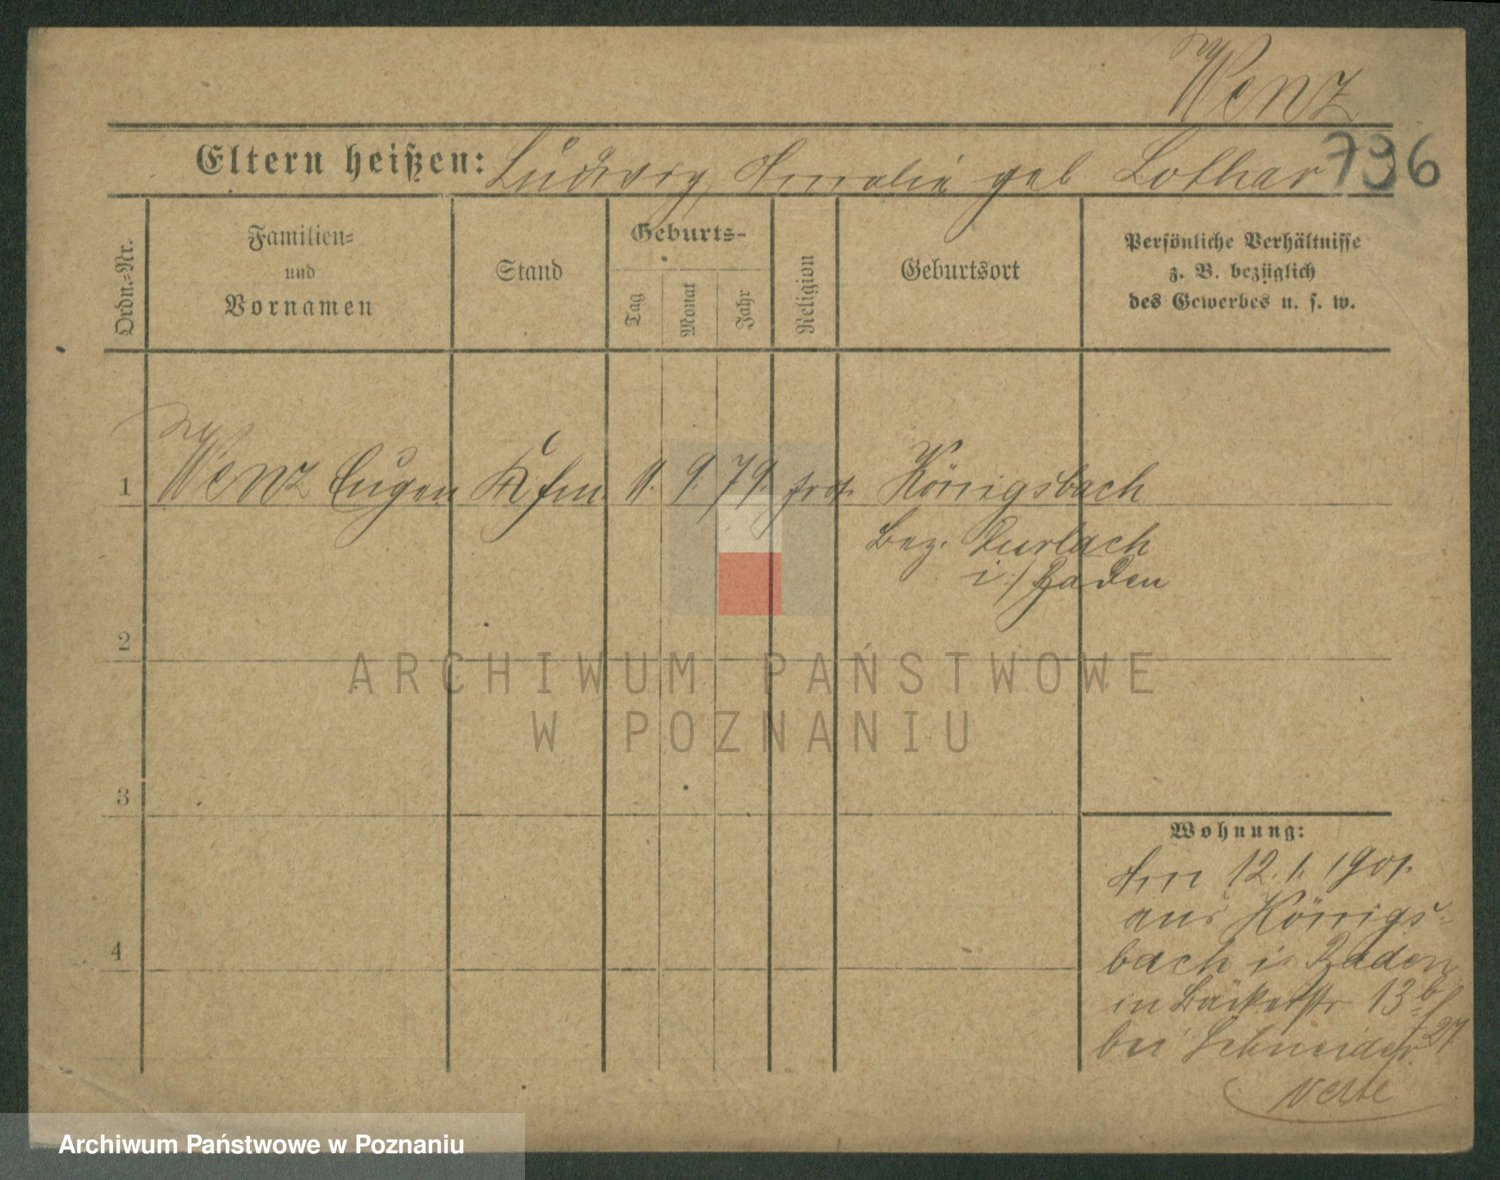 Wenz
796
Eltern heißen: Ludwig, Amalie geb Lothar
Ordn.-Nr.
Familien-
und
Vornamen
Stand
Geburts-
Tag
Monat
Jahr
Religion
Geburtsort
Persönliche Verhältnisse
z. B. bezüglich
des Gewerbes u. s. w.
1 Wenz Eugen Kfm. 11. 9. 79. prot. Königsbach
Bez. Durlach
i/ Baden
2
3
4
Wohnung:
Am 12. 1. 1901.
aus Königs-
bach i. Baden
in Bäckerstr 13b
bei Schneider 27
verte
ARCHIWUM PAŃSTWOWE
W POZNANIU
Archiwum Państwowe w Poznaniu